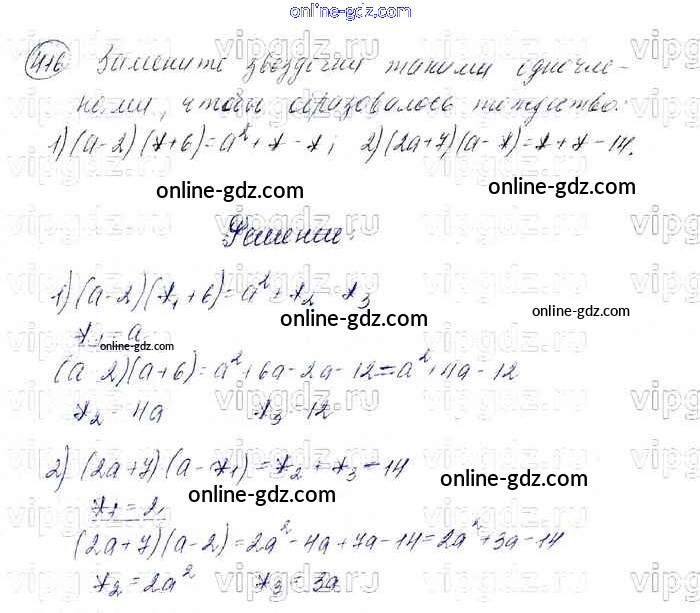 online-gdz.com
416 Замените звездочки такими одночле-
нами, чтобы образовалось тождество:
1) (a-2)(*+6)=a²+*-*; 2) (2a+7)(a-*)=*+*-14.
online-gdz.com online-gdz.com
Решение.
1) (a-2)(*₁+6)=a²+*₂-*₃
online-gdz.com
*₁=a
online-gdz.com
(a-2)(a+6)=a²+6a-2a-12=a²+4a-12
*₂=4a *₃=12
2) (2a+7)(a-*₁)=*₂+*₃-14
online-gdz.com online-gdz.com
*₁=2
(2a+7)(a-2)=2a²-4a+7a-14=2a²+3a-14
*₂=2a² *₃=3a